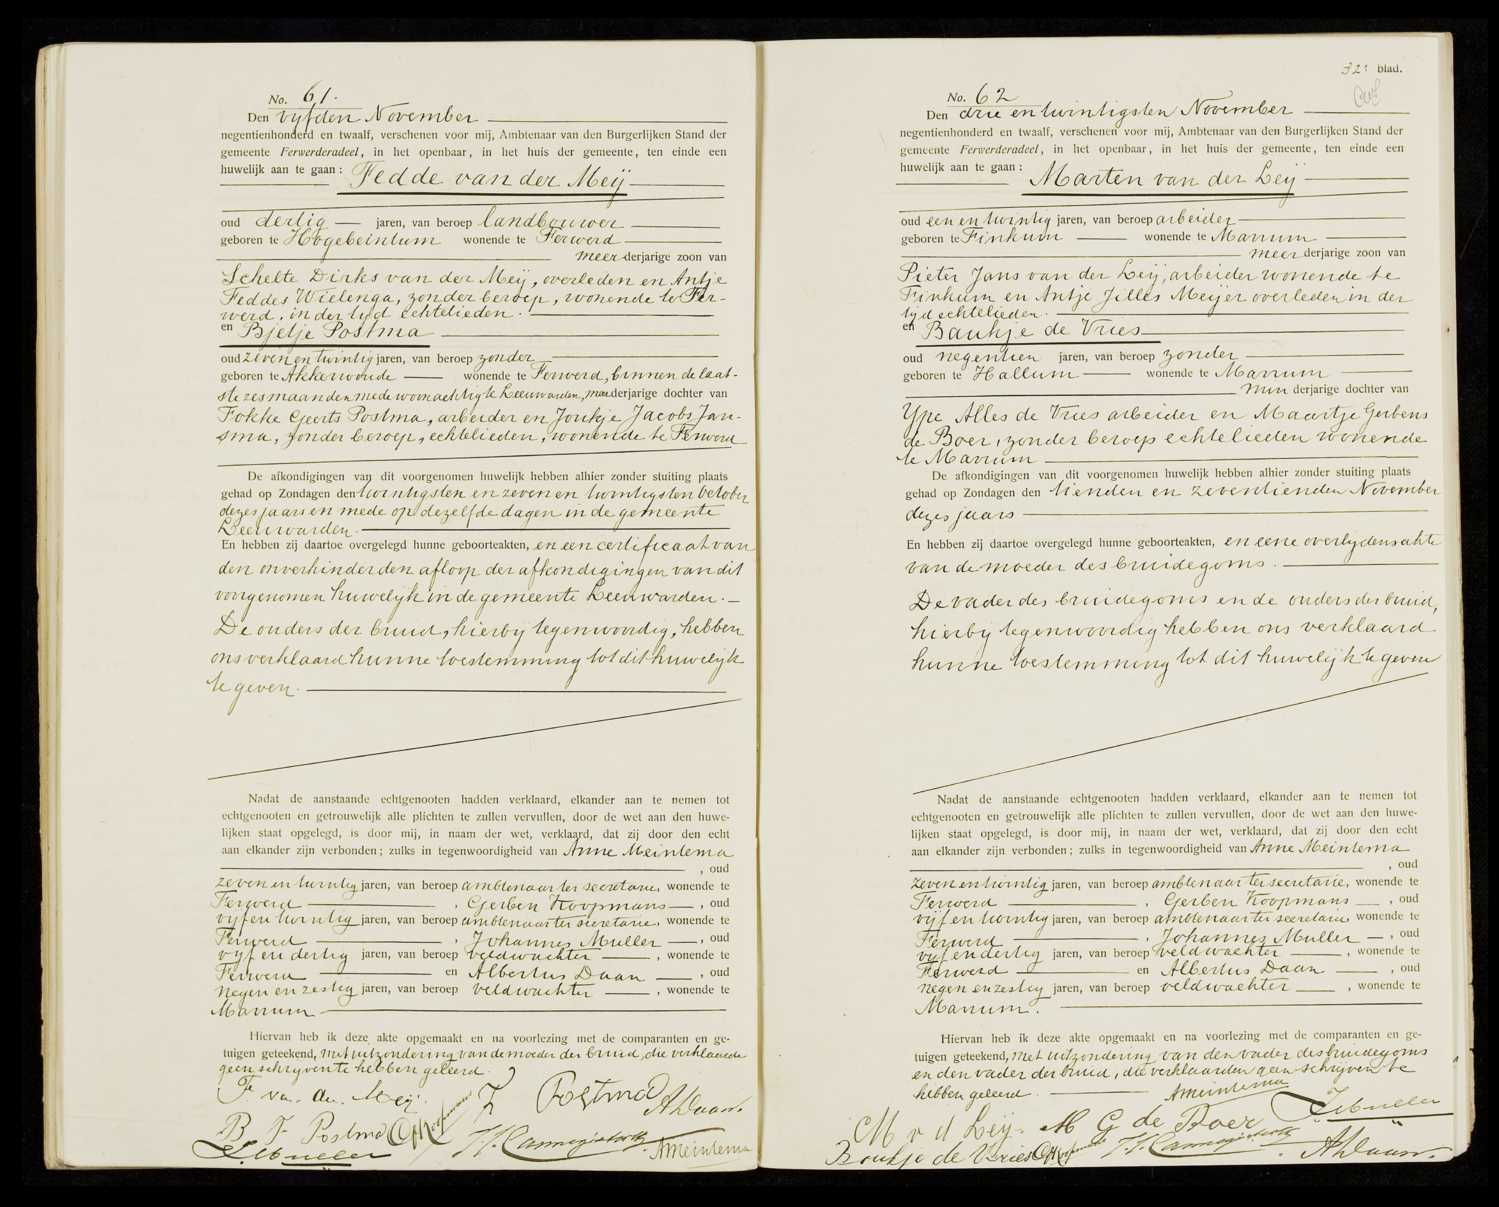 No. 61.
Den vyfden November
negentienhonderd en twaalf, verschenen voor mij, Ambtenaar van den Burgerlijken Stand der
gemeente Ferwerderadeel, in het openbaar, in het huis der gemeente, ten einde een
huwelijk aan te gaan: Fedde van der Meij
oud dertig jaren, van beroep landbouwer
geboren te Hogebeintum wonende te Ferwerd
meerderjarige zoon van
Schelte Dirks van der Meij, overleden en Antje
Feddes Wielenga, zonder beroep, wonende te Fer-
werd, in der tyd echtelieden.
en Bjetje Postma
oud zeven en twintig jaren, van beroep zonder
geboren te Akkerwoude wonende te Ferwerd, binnen de laat-
ste zes maanden mede woonachtig te Leeuwarden, meerderjarige dochter van
Fokke Geerts Postma, arbeider en Joukje Jacobs Jan-
sma, zonder beroep, echtelieden, wonende te Ferwerd
De afkondigingen van dit voorgenomen huwelijk hebben alhier zonder stuiting plaats
gehad op Zondagen den twintigsten en zeven en twintigsten October
dezes jaars en mede op dezelfde dagen in de gemeente
Leeuwarden.
En hebben zij daartoe overgelegd hunne geboorteakten, en een certificaat van
den onverhinderden afloop der afkondigingen van dit
voorgenomen huwelijk in de gemeente Leeuwarden.
De ouders der bruid, hierby tegenwoordig, hebben
ons verklaard hunne toestemming tot dit huwelijk
te geven.
Nadat de aanstaande echtgenooten hadden verklaard, elkander aan te nemen tot
echtgenooten en getrouwelijk alle plichten te zullen vervullen, door de wet aan den huwe-
lijken staat opgelegd, is door mij, in naam der wet, verklaard, dat zij door den echt
aan elkander zijn verbonden; zulks in tegenwoordigheid van Anne Meintema
, oud
zeven en twintig jaren, van beroep ambtenaar ter secretarie, wonende te
Ferwerd , Gerben Koopmans , oud
vijf en twintig jaren, van beroep ambtenaar ter secretarie, wonende te
Ferwerd , Johannes Muller , oud
vyf en dertig jaren, van beroep veldwachter , wonende te
Ferwerd en Albertus Daan , oud
negen en zestig jaren, van beroep veldwachter , wonende te
Marrum
Hiervan heb ik deze akte opgemaakt en na voorlezing met de comparanten en ge-
tuigen geteekend, met uitzondering van de moeder der bruid, die verklaarde
geen schryven te hebben geleerd.
F. v. d. Meij.
F Postma
ADaan.
B F Postma
GKoopmans
JMuller
AMeintema
32e blad.
No. 62
Den drie en twintigsten November
negentienhonderd en twaalf, verschenen voor mij, Ambtenaar van den Burgerlijken Stand der
gemeente Ferwerderadeel, in het openbaar, in het huis der gemeente, ten einde een
huwelijk aan te gaan: Marten van der Leij
oud een en twintig jaren, van beroep arbeider
geboren te Finkum wonende te Marrum
meerderjarige zoon van
Pieter Jans van der Leij, arbeider wonende te
Finkum en Antje Jilles Meijer overleden in der
tijd echtelieden.
en Baukje de Vries
oud negentien jaren, van beroep zonder
geboren te Hallum wonende te Marrum
minderjarige dochter van
Ype Alles de Vries arbeider en Maartje Gerbens
de Boer, zonder beroep echtelieden wonende
te Marrum
De afkondigingen van dit voorgenomen huwelijk hebben alhier zonder stuiting plaats
gehad op Zondagen den tienden en zeventienden November
dezes jaars
En hebben zij daartoe overgelegd hunne geboorteakten, en eene overlydensakte
van de moeder des bruidegoms.
De vader des bruidegoms en de ouders der bruid,
hierby tegenwoordig hebben ons verklaard
hunne toestemming tot dit huwelijk te geven
Nadat de aanstaande echtgenooten hadden verklaard, elkander aan te nemen tot
echtgenooten en getrouwelijk alle plichten te zullen vervullen, door de wet aan den huwe-
lijken staat opgelegd, is door mij, in naam der wet, verklaard, dat zij door den echt
aan elkander zijn verbonden; zulks in tegenwoordigheid van Anne Meintema
, oud
zeven en twintig jaren, van beroep ambtenaar ter secretarie, wonende te
Ferwerd , Gerben Koopmans , oud
vijf en twintig jaren, van beroep ambtenaar ter secretarie wonende te
Ferwerd , Johannes Muller , oud
vyf en dertig jaren, van beroep veldwachter , wonende te
Ferwerd en Albertus Daan , oud
negen en zestig jaren, van beroep veldwachter , wonende te
Marrum.
Hiervan heb ik deze akte opgemaakt en na voorlezing met de comparanten en ge-
tuigen geteekend, met uitzondering van den vader des bruidegoms
en den vader der bruid, die verklaarden geen schrijven te
hebben geleerd.
AMeintema
JMuller
M v d Leij.
M G de Boer
Baukje de Vries
GKoopmans
ADaan.